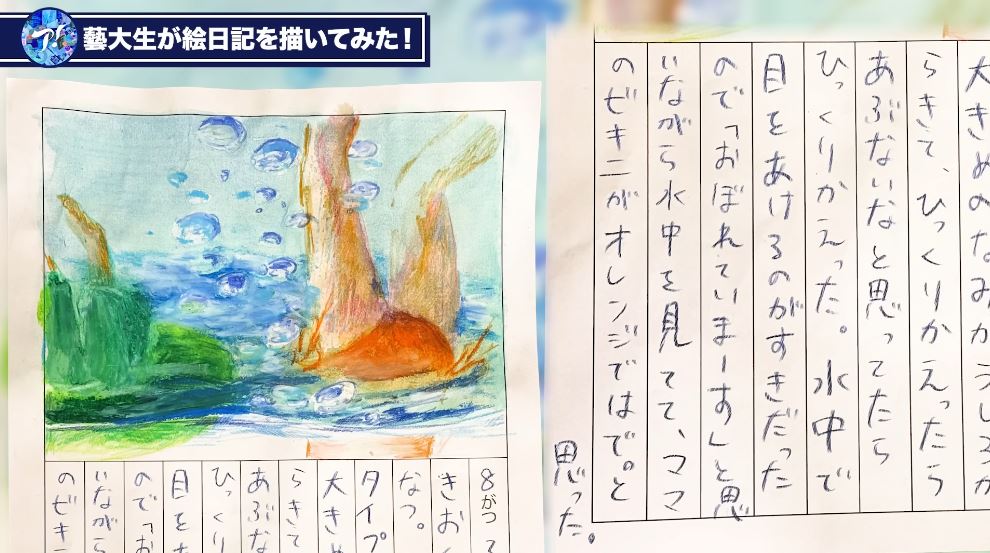 ア!
藝大生が絵日記を描いてみた!
8がつ
きおく
なつ。
タイプ
大きめ
らきて
あぶな
ひっくり
目をあ
ので「お
いながら
のビキニ
大きめのなみがうしろか
らきて、ひっくりかえったら
あぶないなと思ってたら
ひっくりかえった。水中で
目をあけるのがすきだった
ので「おぼれていまーす」と思
いながら水中を見てて、ママ
のビキニがオレンジではで。と
思った。